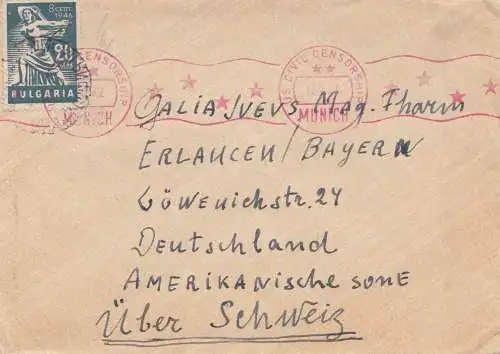 8 СЕПТ. 1946
20
BULGARIA
CIVIL CENSORSHIP
MUNICH
US CIVIL CENSORSHIP
MUNICH
GALIA IVEVS Mag. Pharm
ERLANCEN/BAYERN
Löwenichstr. 24
Deutschland
AMERIKANische SONE
Über Schweiz